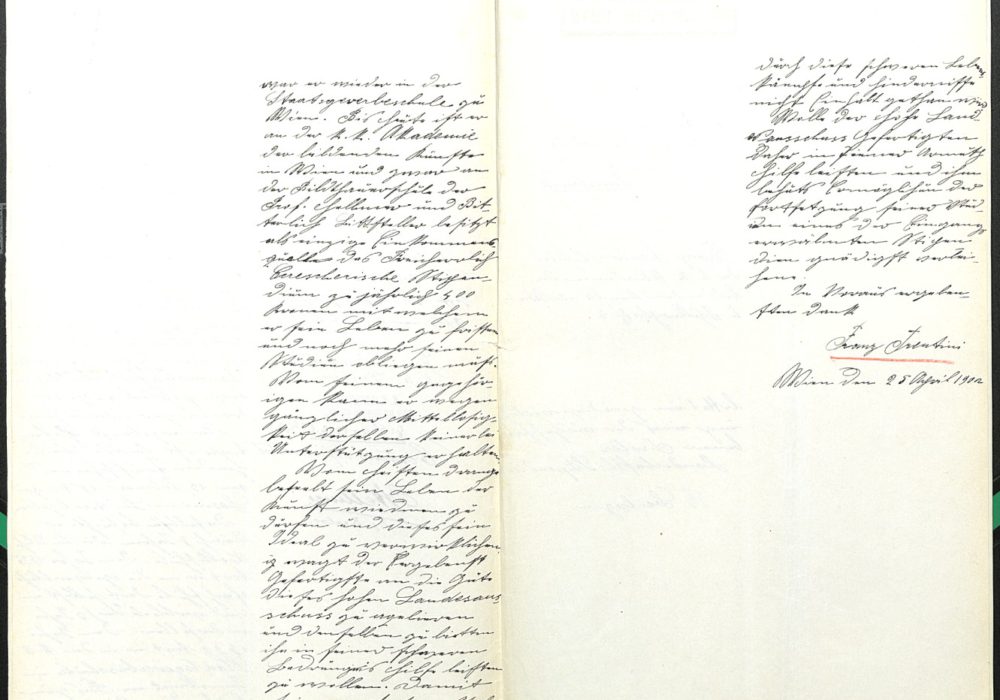 war er wieder in der
Staatsgewerbeschule zu
Wien. Bis heute ist er
an der k. k. Akademie
der bildenden Künste
in Wien und zwar an
der Bildhauerschule der
Prof. Hellmer und Bit-
terlich Bittsteller besitzt
als einzige Einkommens
quelle das Freiherrlich
Stipen-
dium zu jährlich 400
Kronen mit welchem
er sein Leben zu fristen
und noch mehr seinen
Studiun obliegen muß.
Vom seinem gegehör-
igen kann er wegen
gänzlicher Mittellosig-
keit derselben keinerlei
Unterstützung erhalten
Vom heißen Drange
beseelt sein Leben der
Kunst wiedmen zu
dürfen und dieses sein
Ideal zu verwirklichen
so wagt der Ergebenst
Gefertigste an die Güte
dieses hohen Landesaus-
schuss zu apelieren
und denselben zu bitten
ihn in seiner schweren
Bedrängnis hilfe leisten
zu wollen. Damit
durch diese schweren Leben
kämpfe und hindernisse
nicht Einhalt gethan wird
Wolle der hohe Land
esausschuss Gefertigten
daher in seiner Armuth
hilfe leisten und ihm
behufs Ermöglichun der
fortsetzung seiner Stud
eines der Eingangs
erwähnten Stipen
dien gnädigst verlei-
hene.
In Voraus ergeben-
sten dank
Franz Trentini
Wien den 25 April 1902